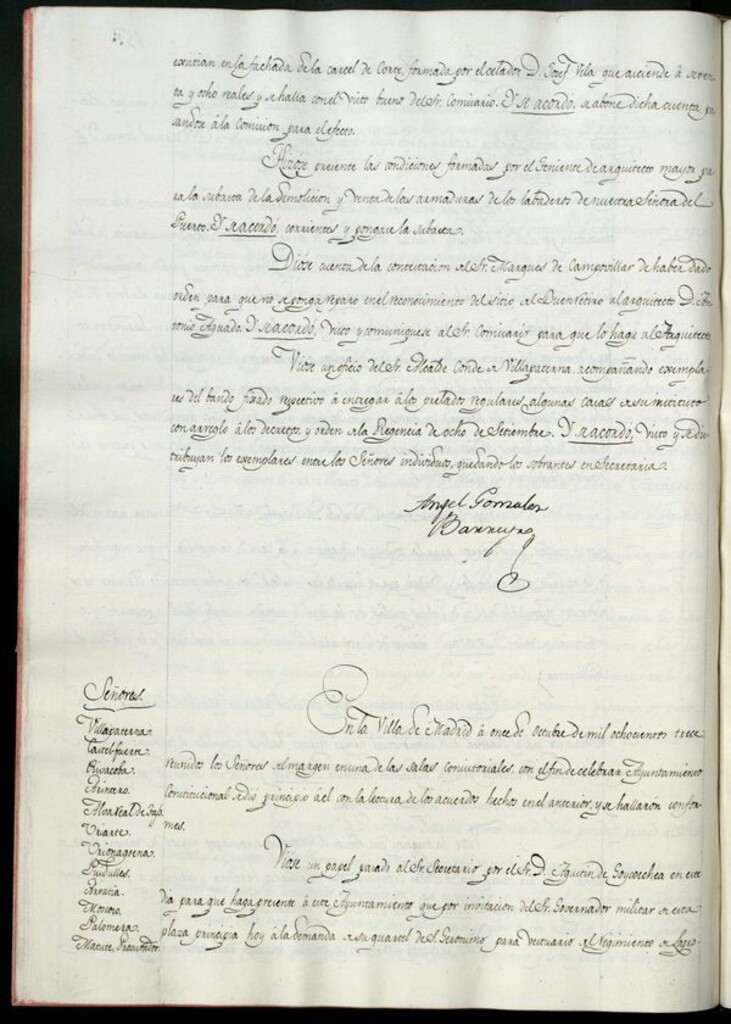 existian en la fachada de la carcel de Corte, formada por el celador D. Josef Vila que asciende á seten-
ta y ocho reales y se halla con el Visto bueno del Sr. Comisario. Y se acordó, se abone dicha cuenta pa-
sandose á la Comision para el efecto.
Hizose presente las condiciones formadas por el teniente de arquitecto mayor pa-
ra la subasta de la demolicion y venta de las armaduras de los labaderos de nuestra Señora del
Puerto. Y se acordó, corrientes y pongase la subasta.
Dióse cuenta de la contestacion del Sr. Marques de Campovillar de haber dado
orden para que no se ponga reparo en el reconocimiento del sitio del Buen retiro al arquitecto D. An-
tonio Aguado. Y se acordó, Visto y comuniquese al Sr. Comisario para que lo haga al Arquitecto.
Viose un oficio del Sr. Alcalde Conde de Villapaterna, acompañando exempla-
res del bando fixado respectivo á entregar á los prelados regulares, algunas casas de su instituto
con arreglo á los decretos, y orden de la Regencia de ocho de Setiembre. Y se acordó, Visto y se dis-
tribuyan los exemplares entre los Señores individuos, quedando los sobrantes en Secretaria.
Angel Gonzalez
Barreyro
Señores.
Villapaterna.
Castel-fuerte.
Rivacoba.
Quintero.
Alvareal de Tajo.
Uriarte.
Urionagoena.
Puidulles.
Arratia.
Moscoso.
Palomera.
Matute, Procurador.
En la Villa de Madrid á once de Octubre de mil ochocientos trece
reunidos los Señores del margen en una de las salas consistoriales, con el fin de celebrar Ayuntamiento
Constitucional se dió principio á él con la lectura de los acuerdos hechos en el anterior, y se hallaron confor-
mes.
Viose un papel pasado al Sr. Secretario por el Sr. D. Agustin de Goycoechea en este
dia para que haga presente á este Ayuntamiento que por invitacion del Sr. Governador militar de esta
plaza principia hoy á la demanda de su quartel de S. Geronimo para vestuario del Regimiento de Logro-